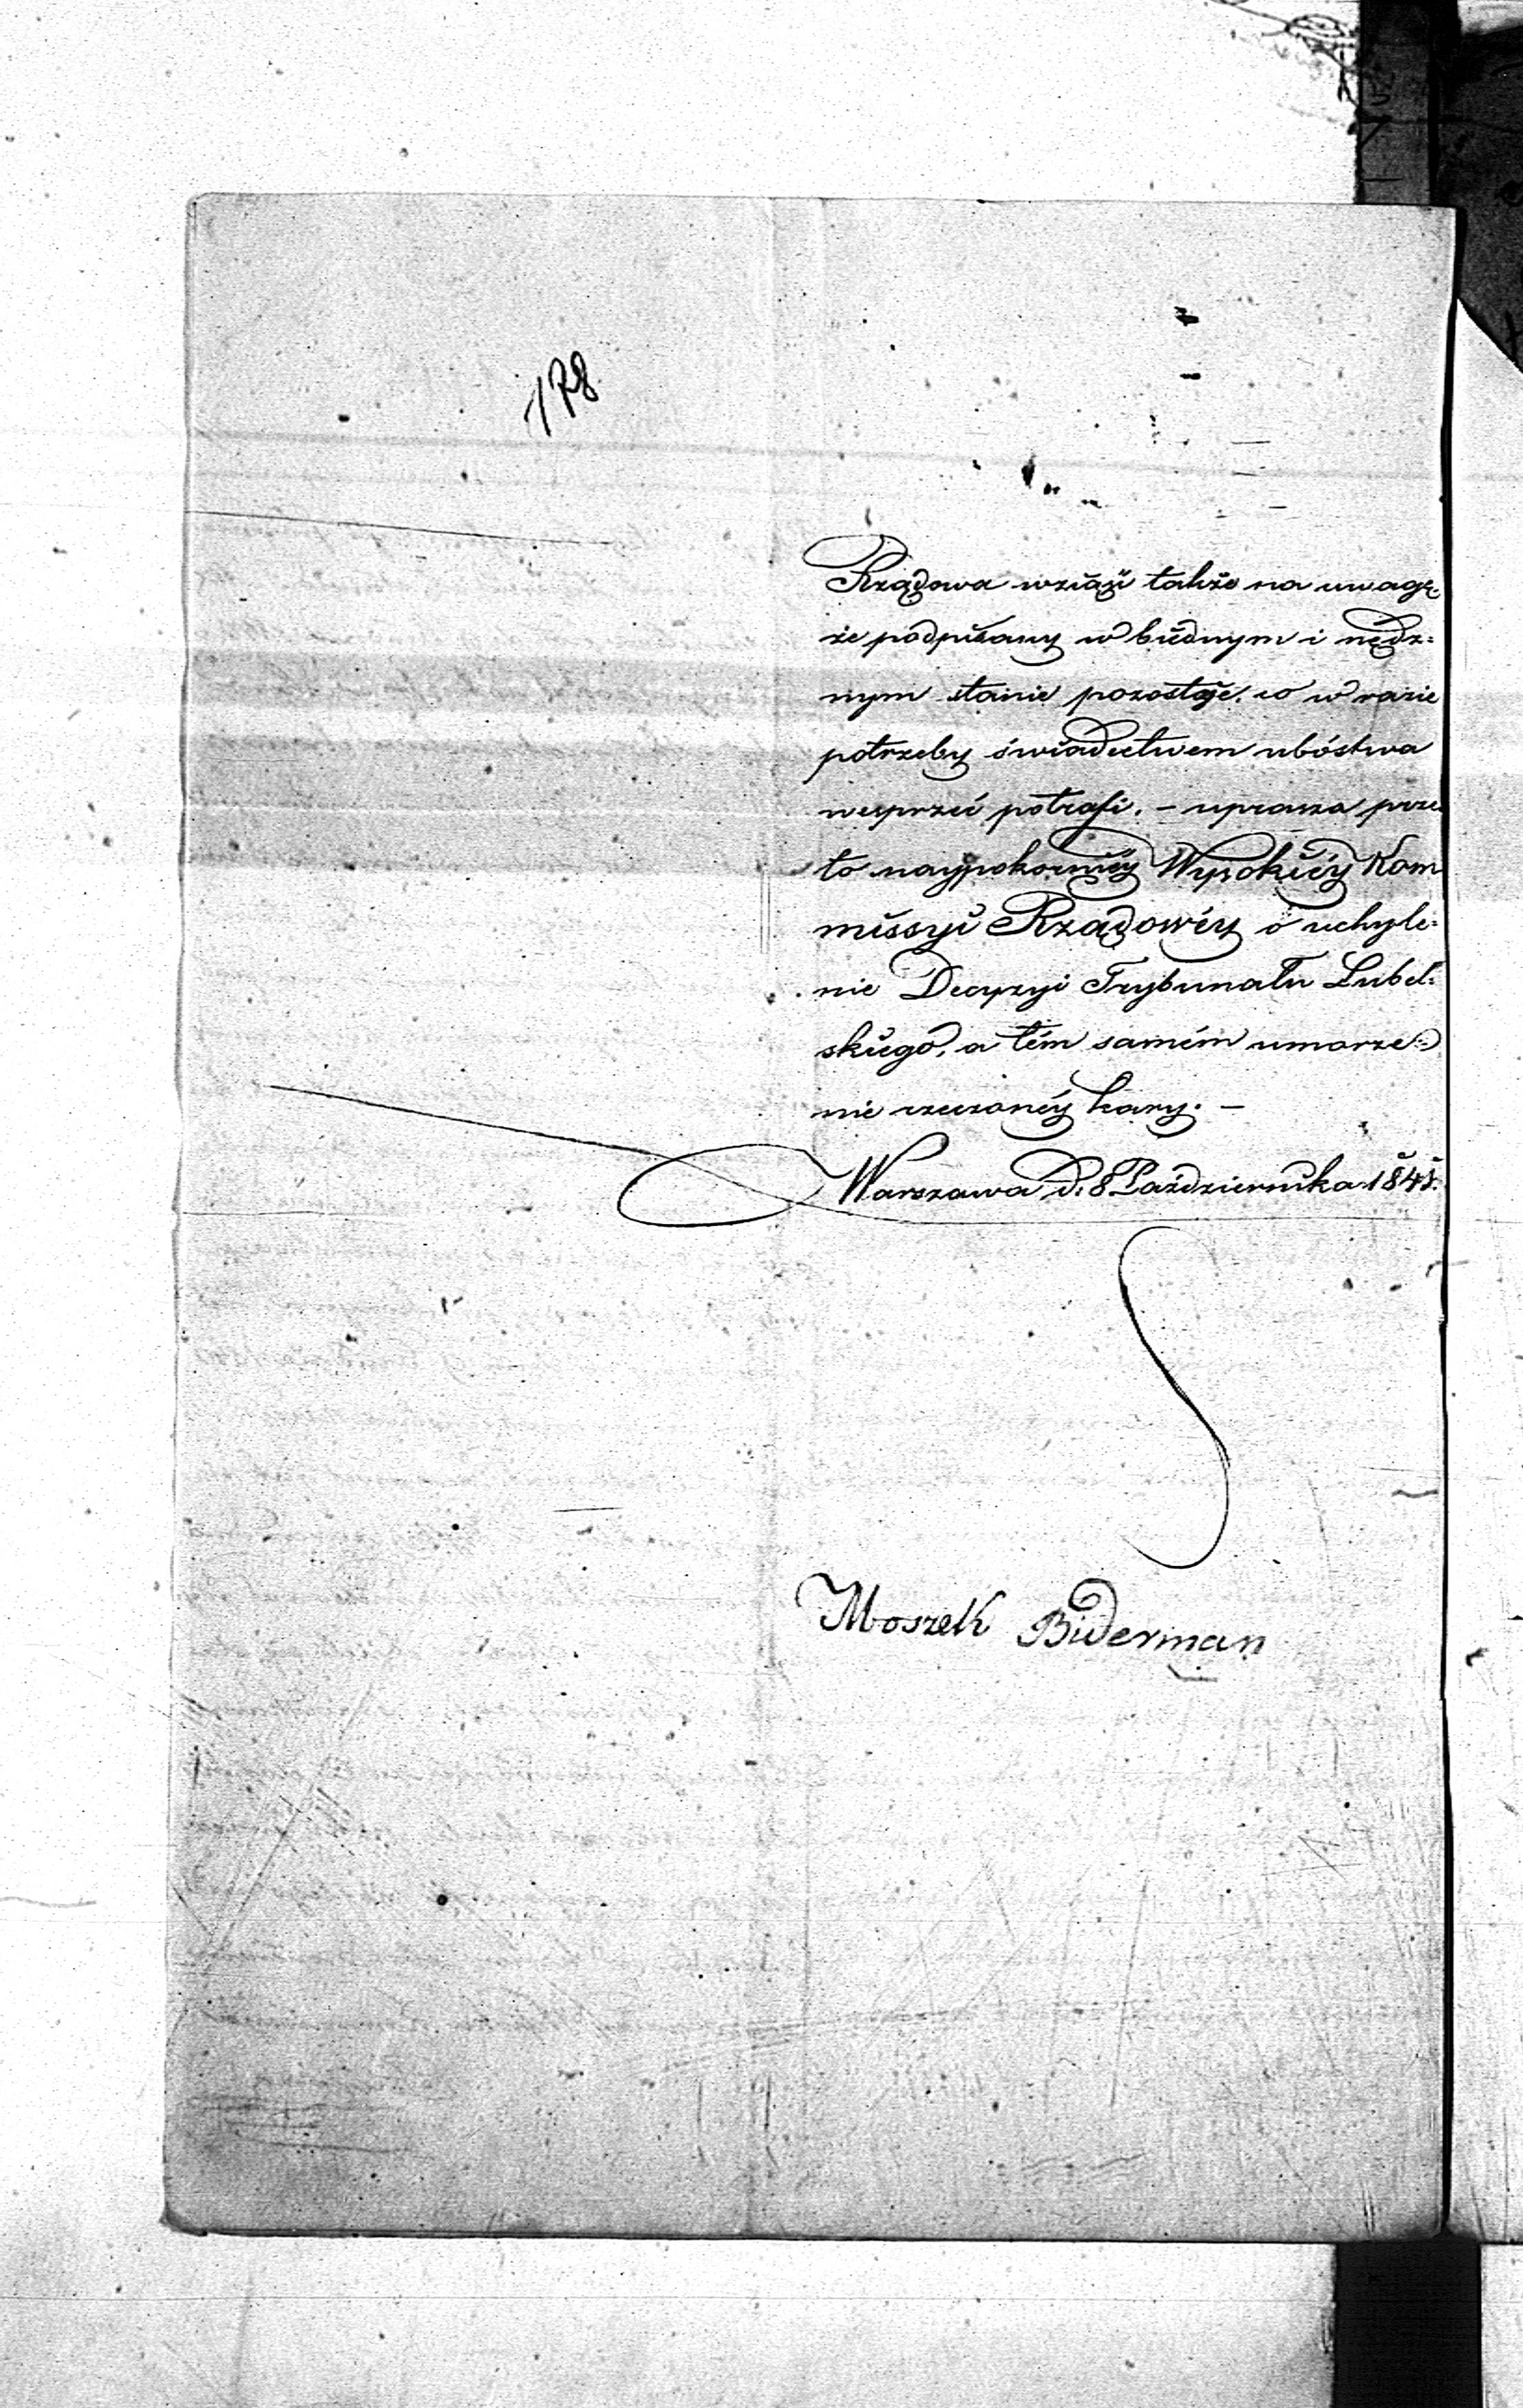 178
Rządowa wziąść także na uwagę
że podpisany w biednym i nędz=
nym stanie pozostaje, co w razie
potrzeby świadectwem ubóstwa
wesprzeć potrafi. – uprasza prze
to naypokorniéy Wysokiéy Kom
missyi Rządowéy o uchyle=
nie Decyzyi Trybunału Lubel=
skiego, a tém samém umorze=
nie rzeczonéy kary. –
Warszawa d. 8 Października 184
Moszek Biderman